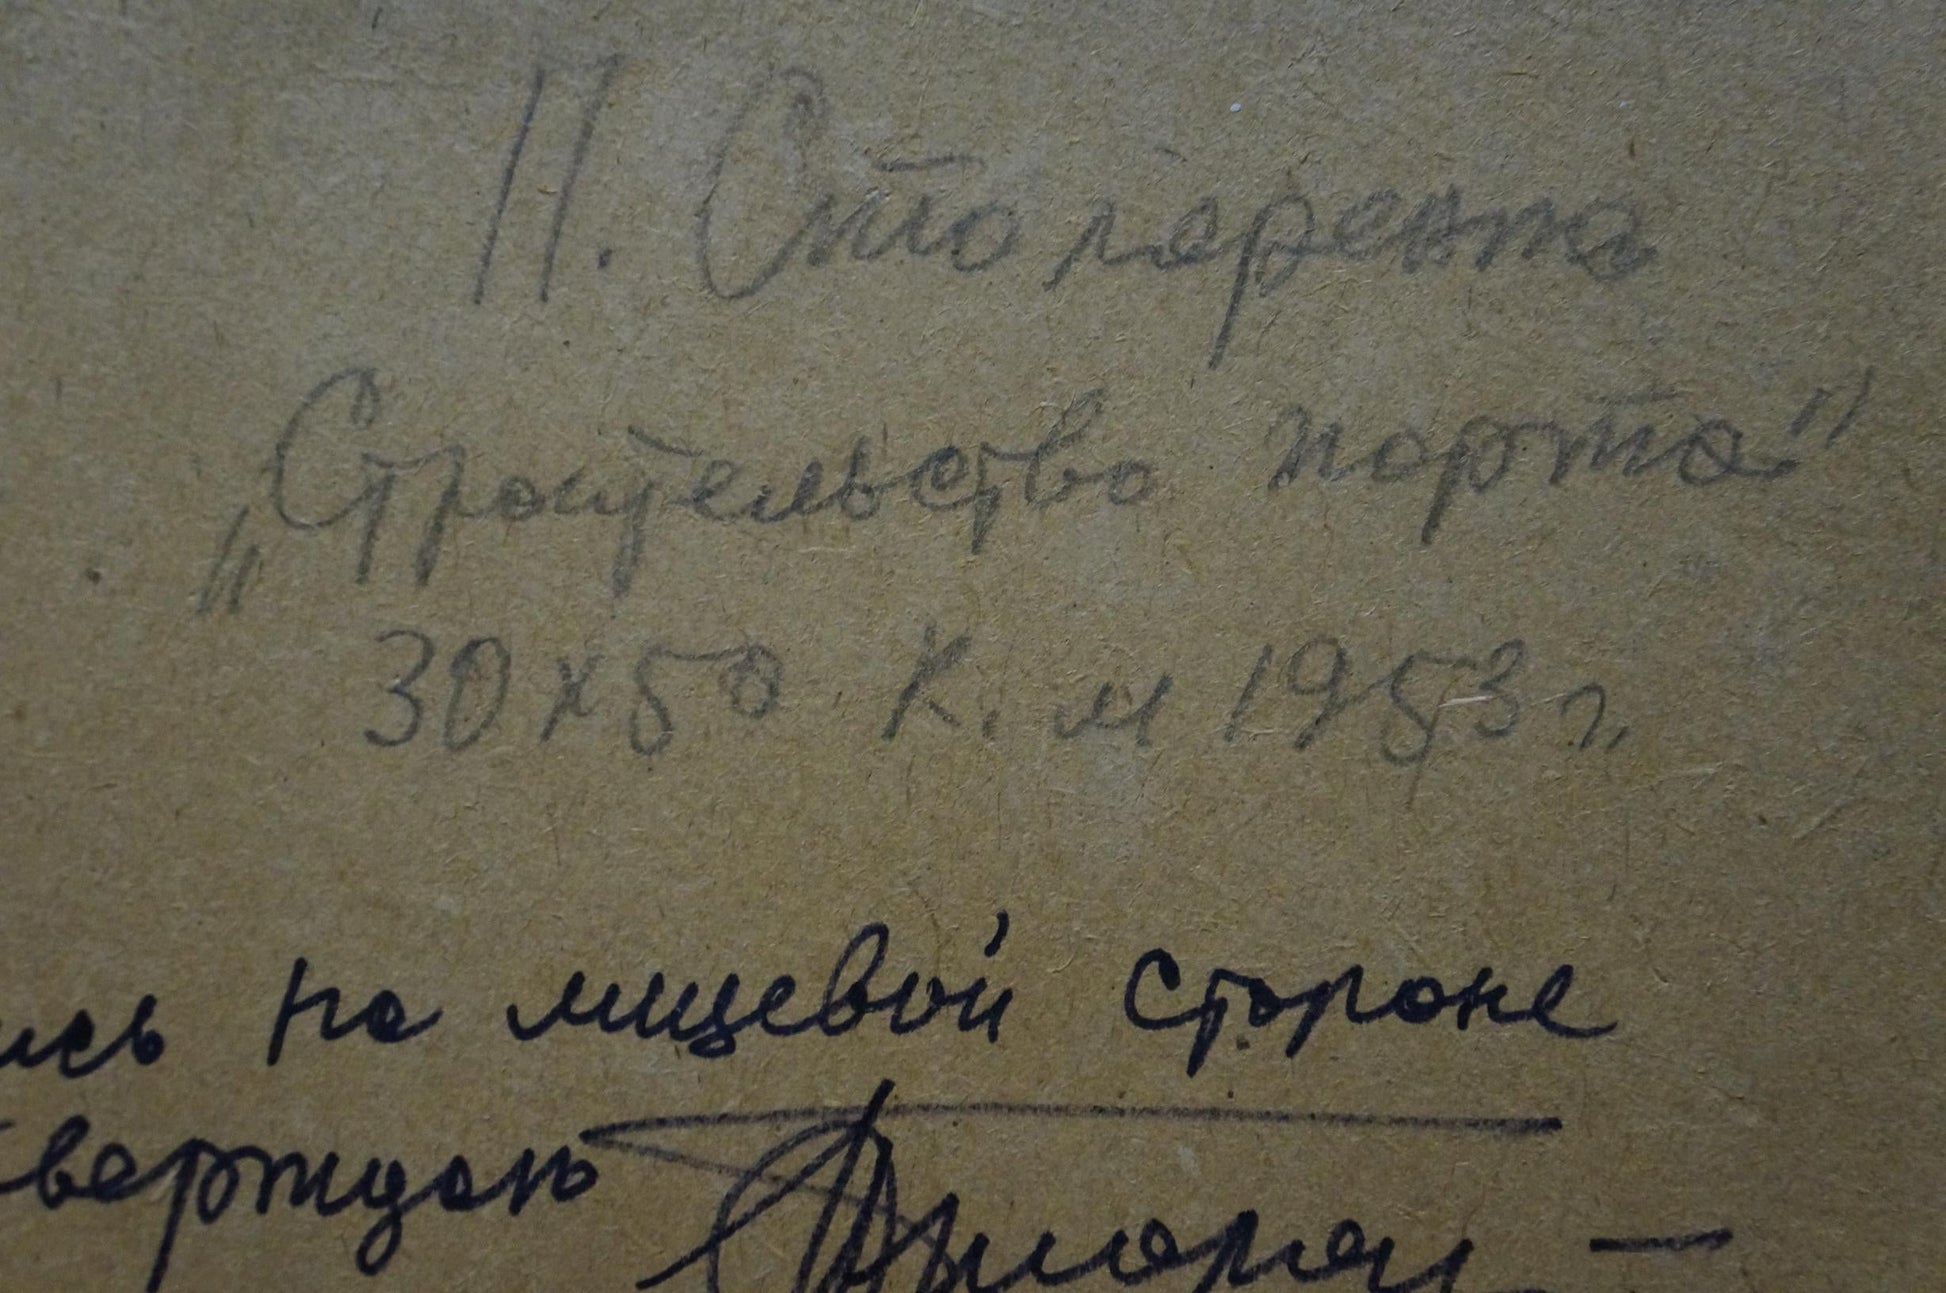 П. Столяренко
„Строительство порта"
30х50 К. м 1953 г.
ись на лицевой стороне
тверждаю